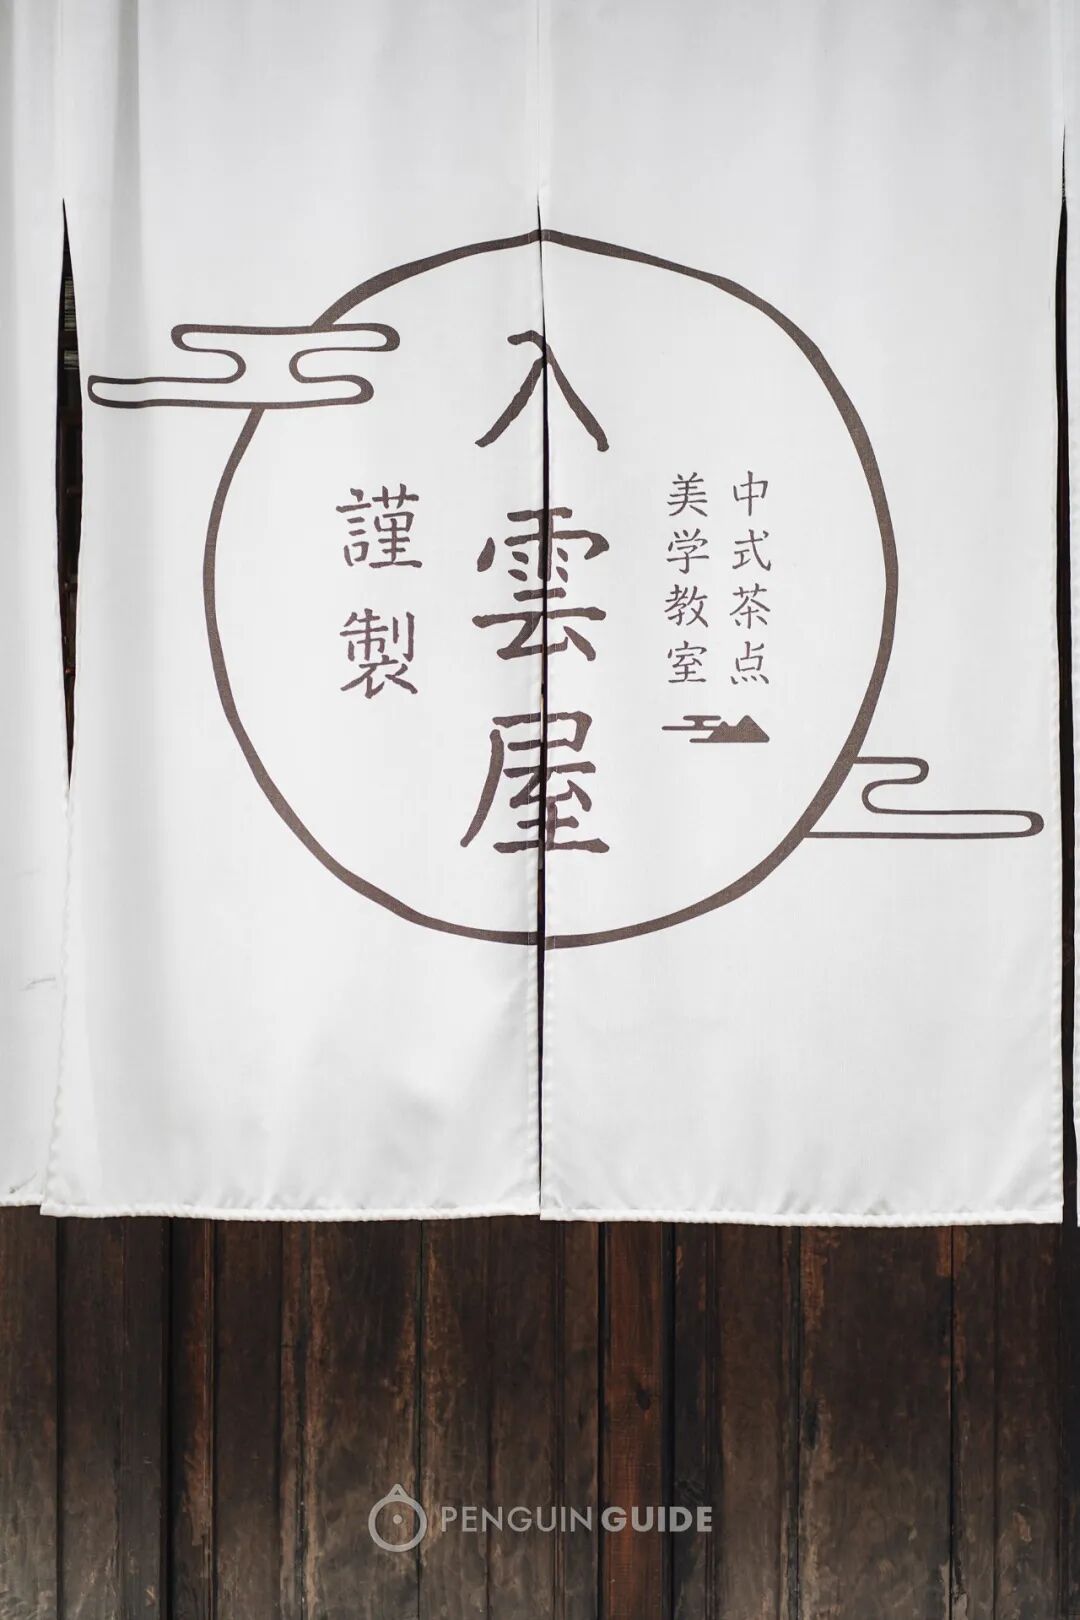 中式茶点
美学教室
入雲屋
謹製
PENGUIN GUIDE